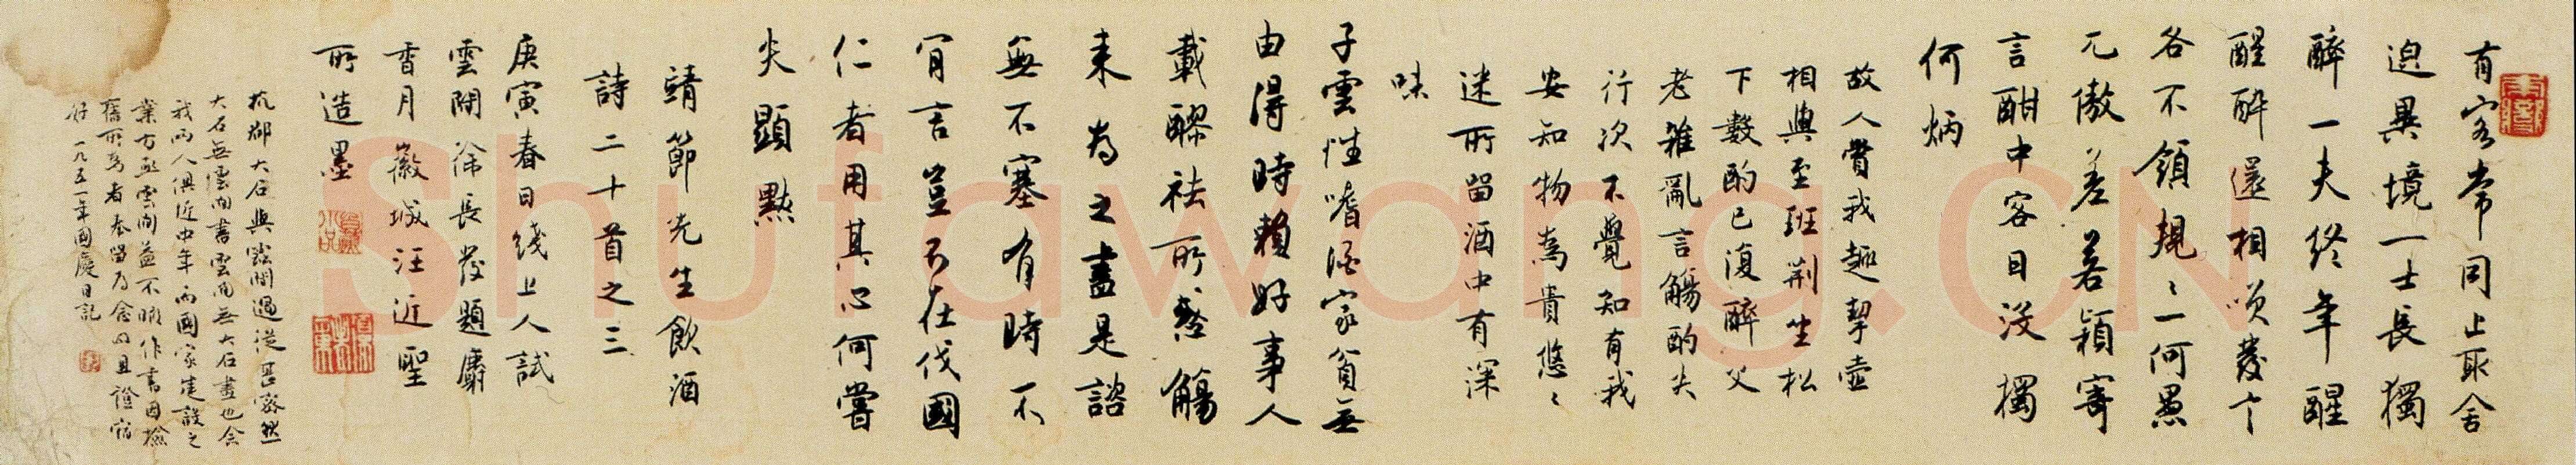 有客常同止取舍
迥異境一士長獨
醉一夫終年醒
醒醉還相咲發言
各不領規〻一何愚
兀傲差若穎寄
言酣中客日没獨
何炳
故人賞我趣挈壺
相與至班荆坐松
下數酌已復醉父
老雜亂言觴酌失
行次不覺知有我
安知物為貴悠〻
迷所留酒中有深
味
子雲性嗜酒家貧無
由得時賴好事人
載醪袪所惑觴
来為之盡是諮
無不塞有時不
肯言豈不在伐國
仁者用其心何嘗
失顯默
靖節先生飲酒
詩二十首之三
庚寅春日綫上人試
雲閒徐長發題麝
香月徽城汪近聖
所造墨
杭郡大石與雲間過從甚密然
大石無雲間書雲間無大石畫也今
我兩人俱近中年而國家建設之
業方亟雲間益不暇作書因檢
舊所為者奉留為念回且證宿
好一九五一年國慶日記
Shufawang.CN